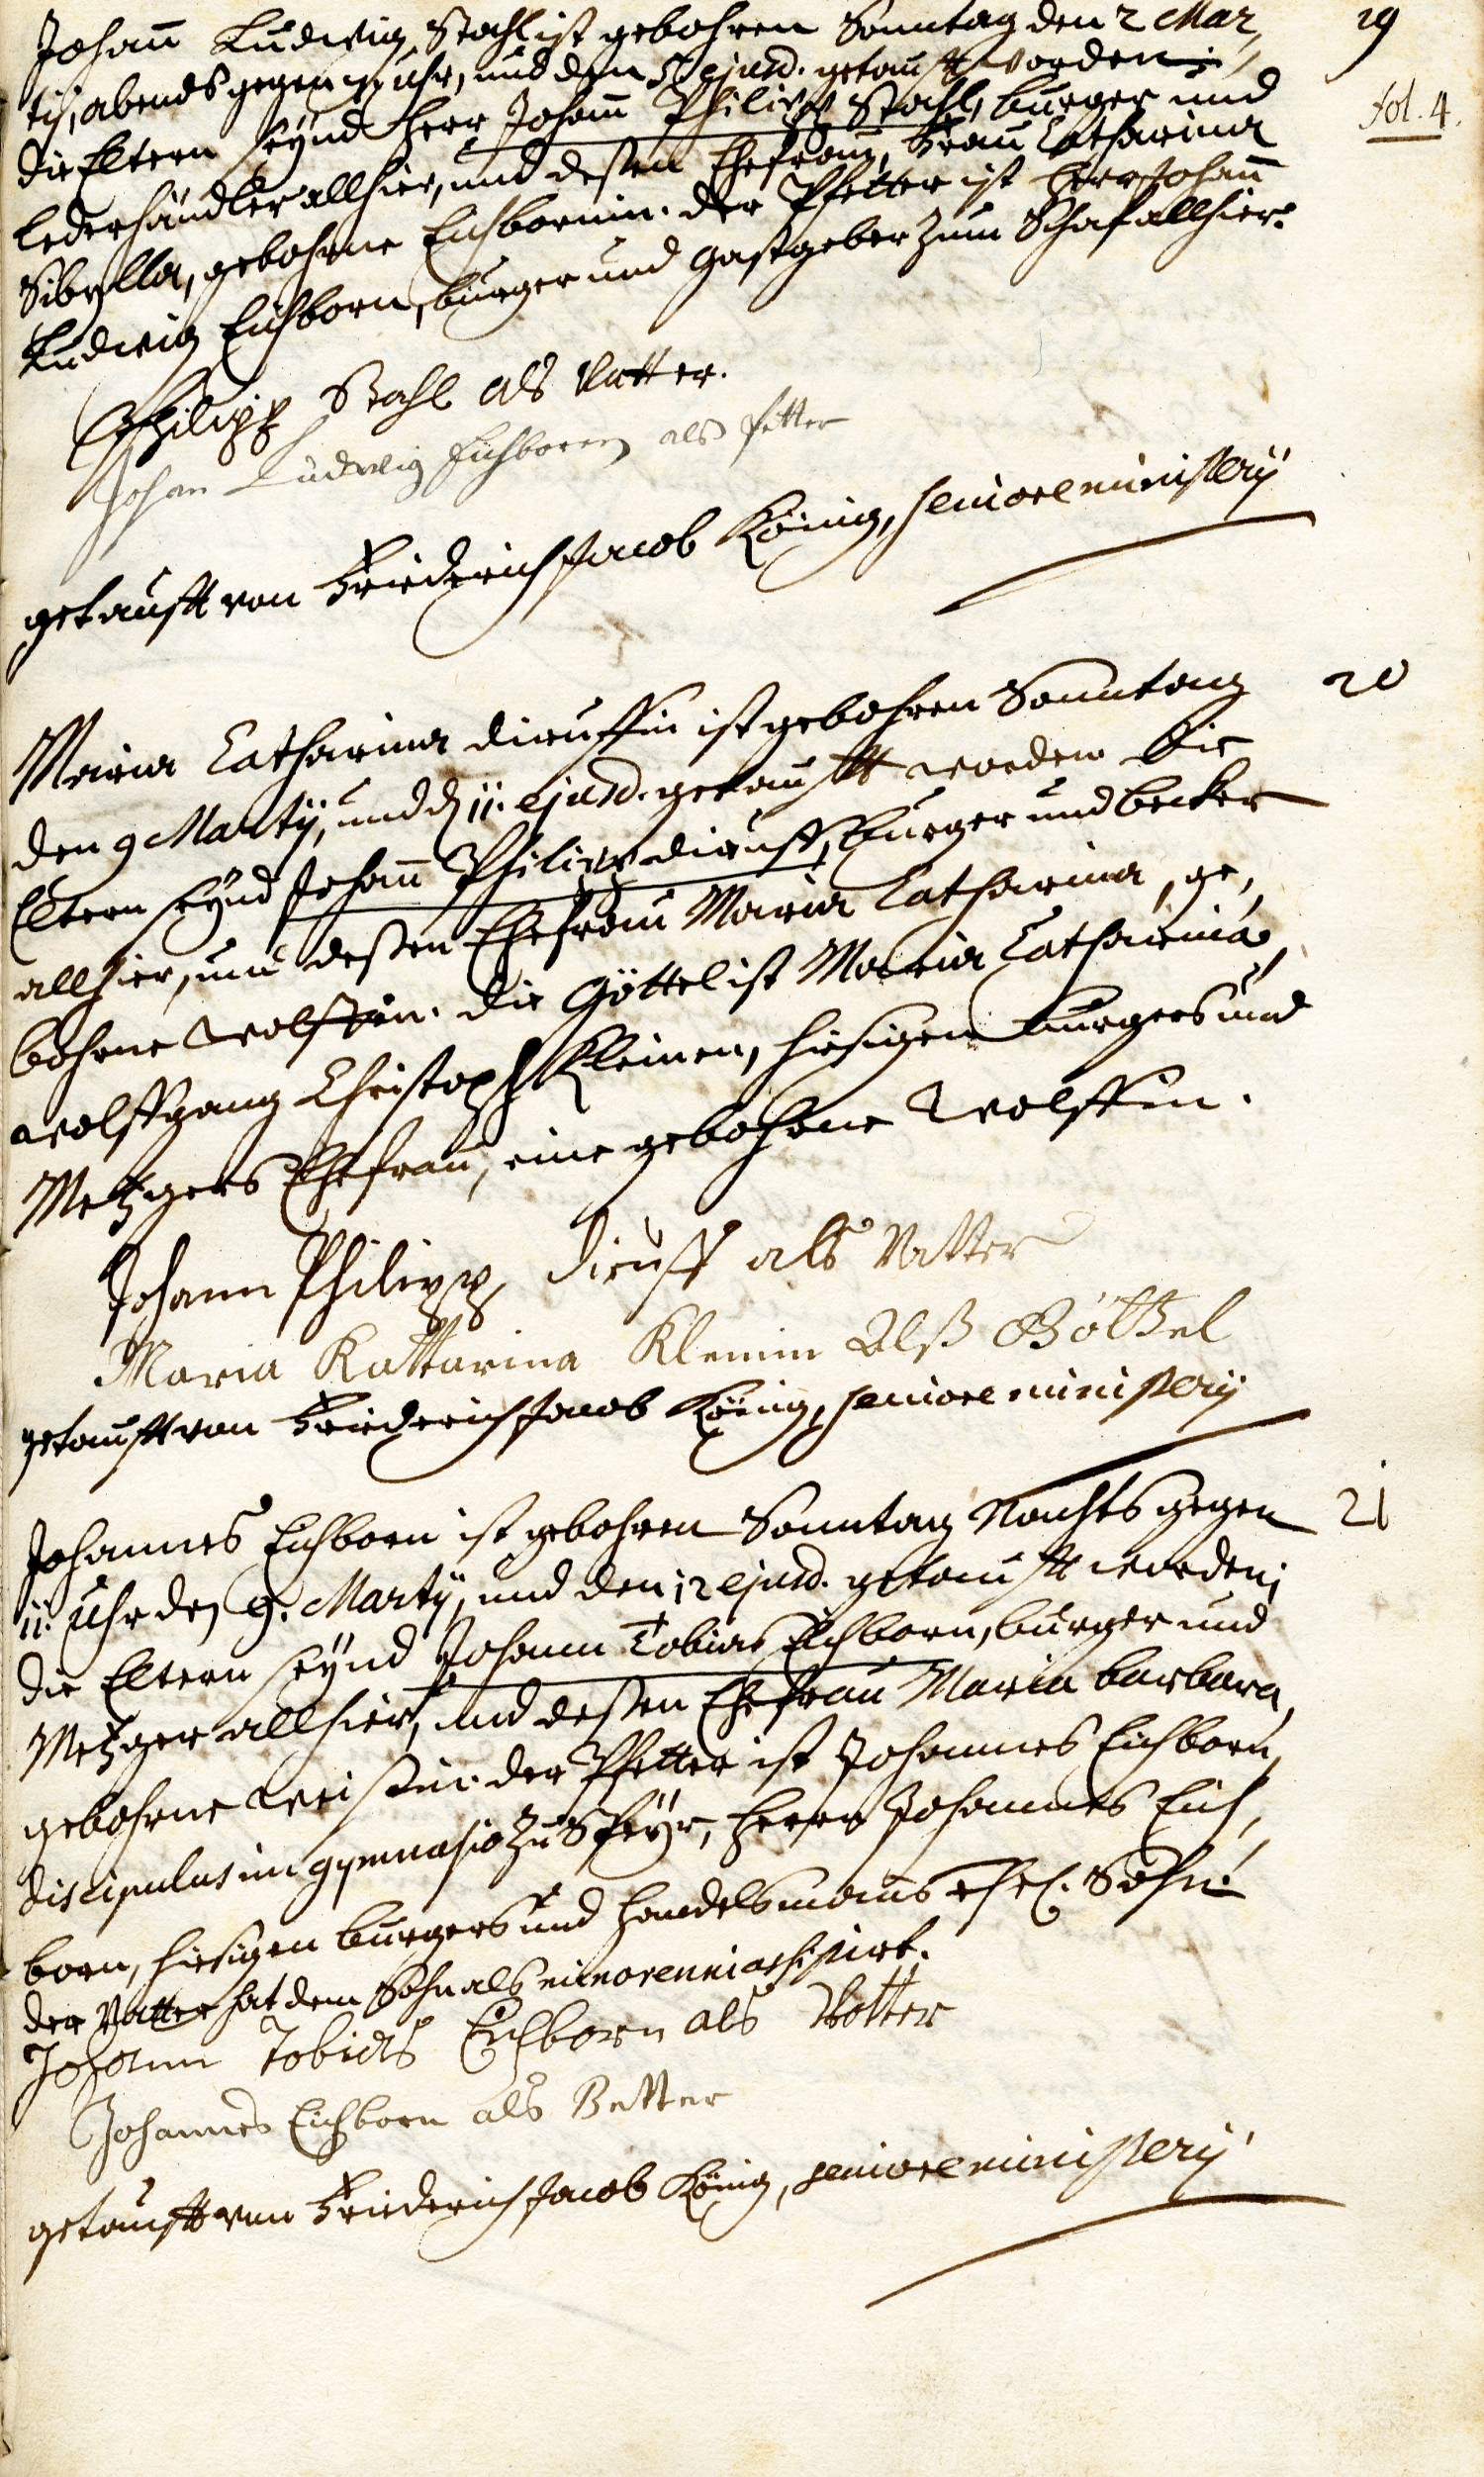 Johan̄ Ludwig Stahl ist gebohren Sonntag den 2 Mar, 19
tij, abends gegen uhr, und den 5 ejusd. getaufft worden; fol. 4.
die Eltern seÿnd Herr Johan̄ Philipp Stahl, burger und
Lederhändler allhier, und deßen Ehefrau, Frau Catharina
Sibylla, gebohrne Eichbornin. der Pfetter ist Herr Johan̄
Ludwig Eichborn, burger und gastgeber zum Schaf allhier.
Philipp Stahl als Vatter.
Johan Ludwig Eichborn als Petter
getaufft von Friederich Jacob König, seniore ministerij
Maria Catharina Dieruffin ist gebohren Sonntag 20
den 9 Martij, und d. 11. ejusd. getaufft worden die
Eltern seÿnd Johan̄ Philipp Dieruff, burger und becker
allhier, und deßen Ehefrau Maria Catharina, ge,
bohrne Wolffin. die Göttel ist Maria Catharina,
Wolffgang Christoph Kleinen, hiesigen burgers und
Metzgers Ehefrau, eine gebohrne Wolffin.
Johann Philipp Dieruff als Vatter
Maria Kattarina Kleinin Alß Göttel
getaufft von Friederich Jacob König, seniore ministerij
Johannes Eichborn ist gebohren Sonntag Nachts gegen 21
11. Uhr den 9. Martij, und den 12 ejusd. getaufft worden;
die Eltern seÿnd Johann Tobias Eichborn, burger und
Metzger allhier, und deßen Ehefrau Maria barbara,
gebohrne Weißin. der Pfetter ist Johannes Eichborn,
discipulus im gymnasio zu Speÿr, Herrn Johannes Eich,
born, hiesigen burgers und handelsmanns ehel. Sohn.
der Vatter hat dem Sohn als minorenni assistirt.
Johann Tobias Eichborn als Vatter
Johannes Eichborn als Petter
getaufft von Friederich Jacob König, seniore ministerij